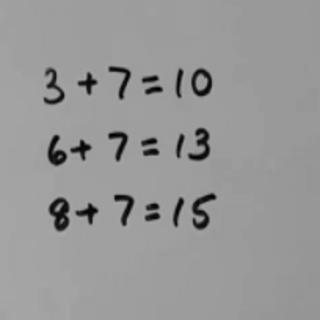 3 + 7 = 10
6 + 7 = 13
8 + 7 = 15